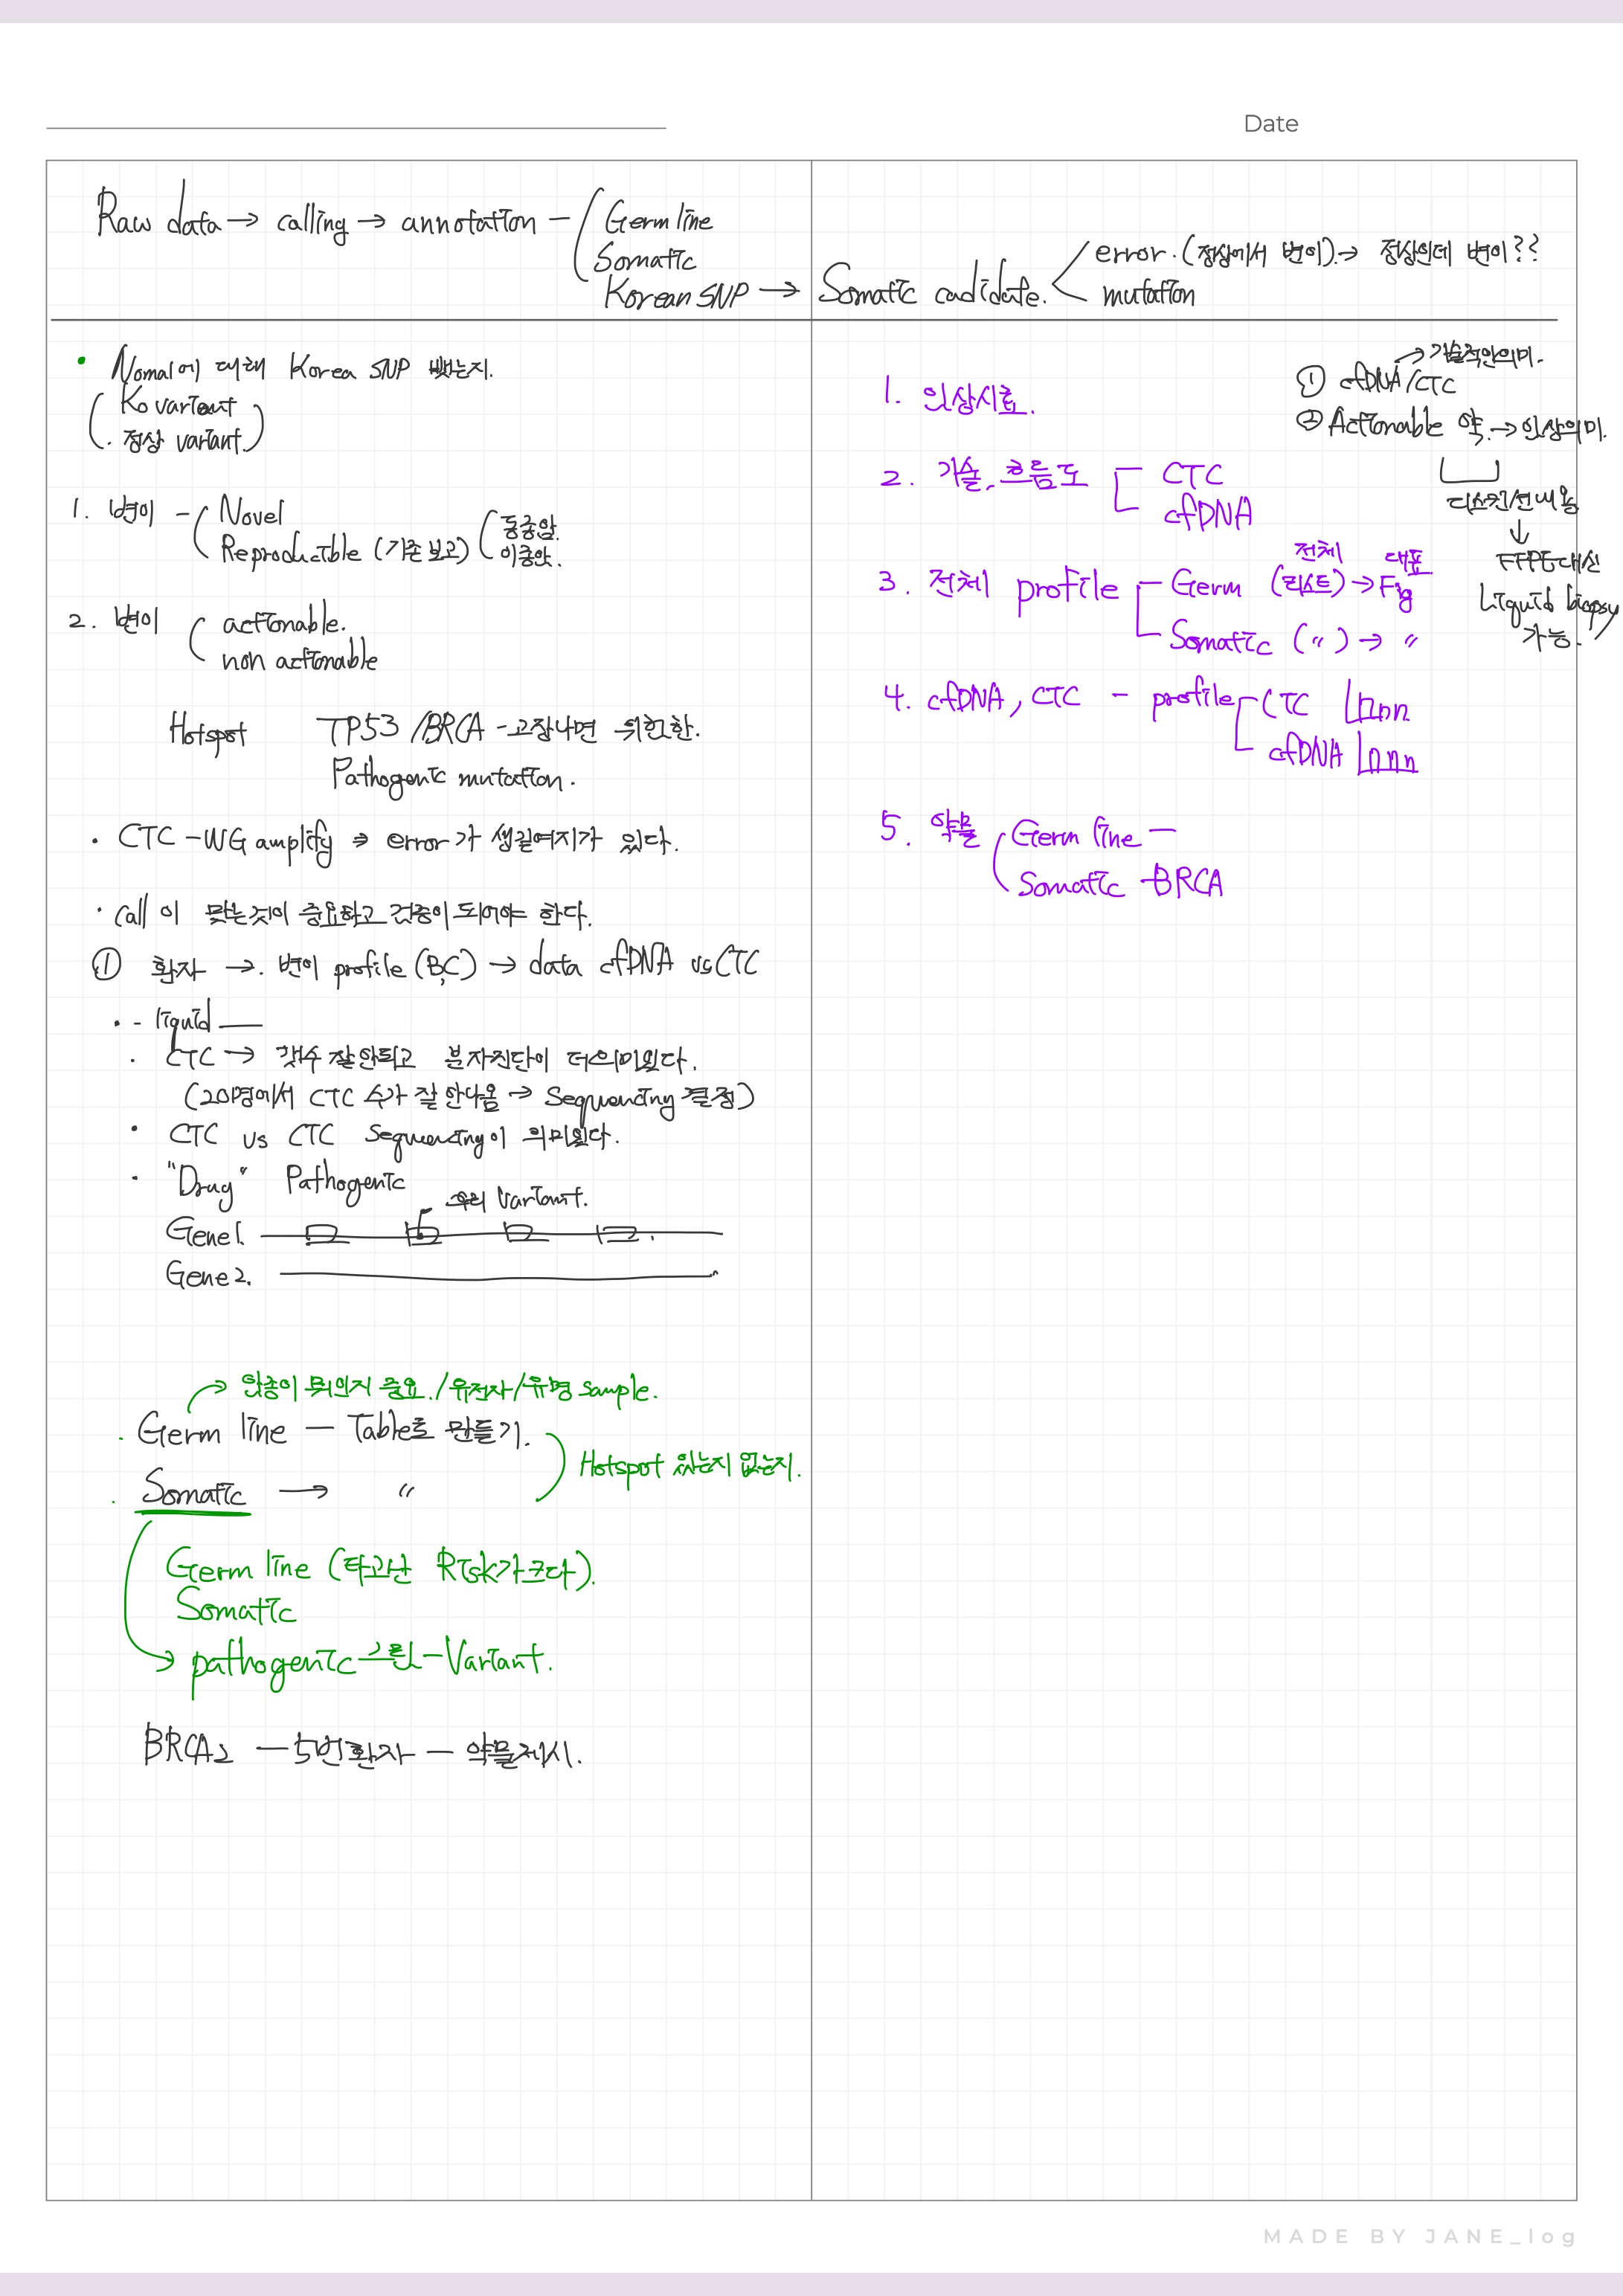 Date
Raw data → calling → annotation - Germ line
Somatic
Korean SNP → Somatic cadidate.
error. (정상에서 변이) → 정상인데 변이??
mutation
• Nomal에 대해 Korea SNP 뺏는지.
Ko variant
. 정상 variant.
1. 변이 - Novel
Reproductable (기존 보고) 동종암.
이종암.
2. 변이 actionable.
non actionable
Hotspot TP53 / BRCA - 고장나면 위험함.
Pathogenic mutation.
• CTC - WG amplify ⇒ error가 생길여지가 있다.
• Call 이 맞는것이 중요하고 검증이 되어야 한다.
① 환자 →. 변이 profile (BC) → data cfDNA vs CTC
• - liquid
• CTC → 갯수 잘안되고 분자진단이 더의미있다.
(20명에서 CTC 수가 잘 안나옴 → Sequencing 결정)
• CTC vs CTC Sequencing이 의미있다.
• "Drug" Pathogenic
우리 Variant.
Gene1.
Gene2.
→ 암종이 뭐인지 중요./유전자/유명 sample.
. Germ line - Table로 만들기.
. Somatic → "
Hotspot 있는지 없는지.
Germ line (타고난 Risk가크다).
Somatic
→ pathogenic - Variant.
BRCA2 - 5번환자 - 약물제시.
1. 임상시료.
2. 기술, 흐름도 CTC
cfDNA
3. 전체 profile - Germ (리스트) → Fig
전체 대표
Somatic (") → "
4. cfDNA, CTC - profile CTC
cfDNA
5. 약물 Germ line -
Somatic - BRCA
→ 기술적인의미.
① cfDNA/CTC
② Actionable 약. → 임상의미.
디스커션내용
↓
FFPE대신
Liquid biopsy
가능.
MADE BY JANE_log